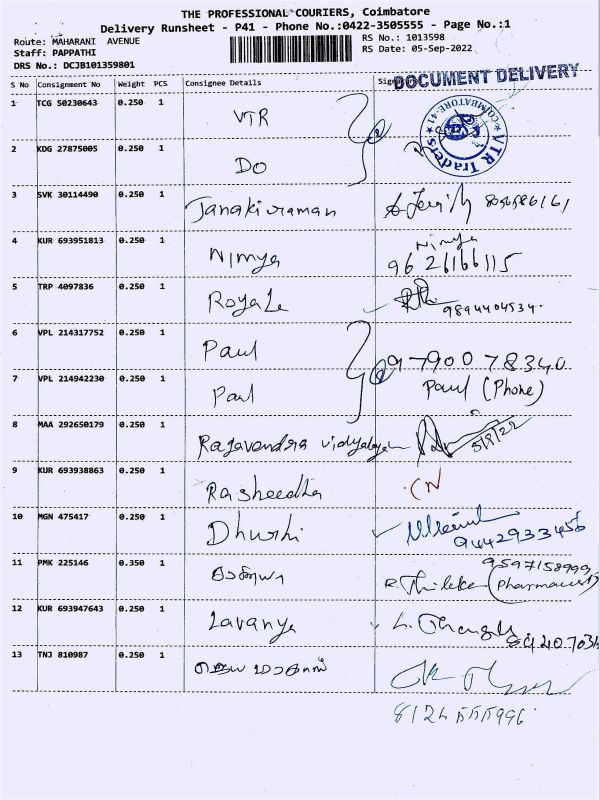 THE PROFESSIONAL COURIERS, Coimbatore
Delivery Runsheet - P41 - Phone No.:0422-3505555 - Page No.:1
Route: MAHARANI AVENUE
RS No.: 1013598
Staff: PAPPATHI
RS Date: 05-Sep-2022
DRS No.: DCJB101359801
DOCUMENT DELIVERY
S No Consignment No Weight PCS Consignee Details
1 TCG 50230643 0.250 1 VTR
COIMBATORE-41 VTR Traders
2 KDG 27875005 0.250 1 Do
3 SVK 30114490 0.250 1 Janakiraman
4 KUR 693951813 0.250 1 Nimya Nimya
9626166115
5 TRP 4097836 0.250 1 Royale 9894404534
6 VPL 214317752 0.250 1 Paul 9790078340
7 VPL 214942230 0.250 1 Paul Paul (Phone)
8 MAA 292650179 0.250 1 Ragavendra vidyalayam 5/9/22
9 KUR 693938863 0.250 1 Rasheedha CN
10 MGN 475417 0.250 1 Dhurshi
9442933456
11 PMK 225146 0.350 1 9597158999
(Pharmacist)
12 KUR 693947643 0.250 1 Lavanya
13 TNJ 810987 0.250 1